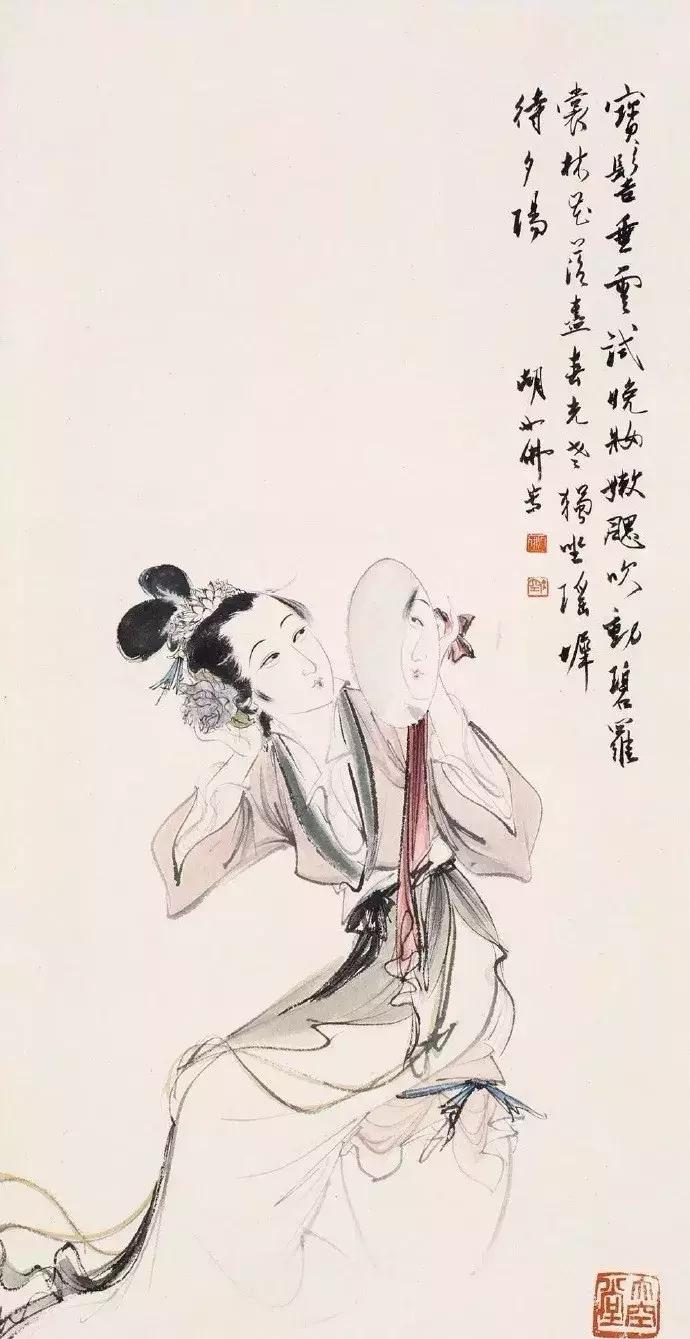 寶髻垂雲試晚妝嫩颸吹動碧羅
裳林花落盡春光老獨坐瑤墀
待夕陽
胡也佛寫
大空堂